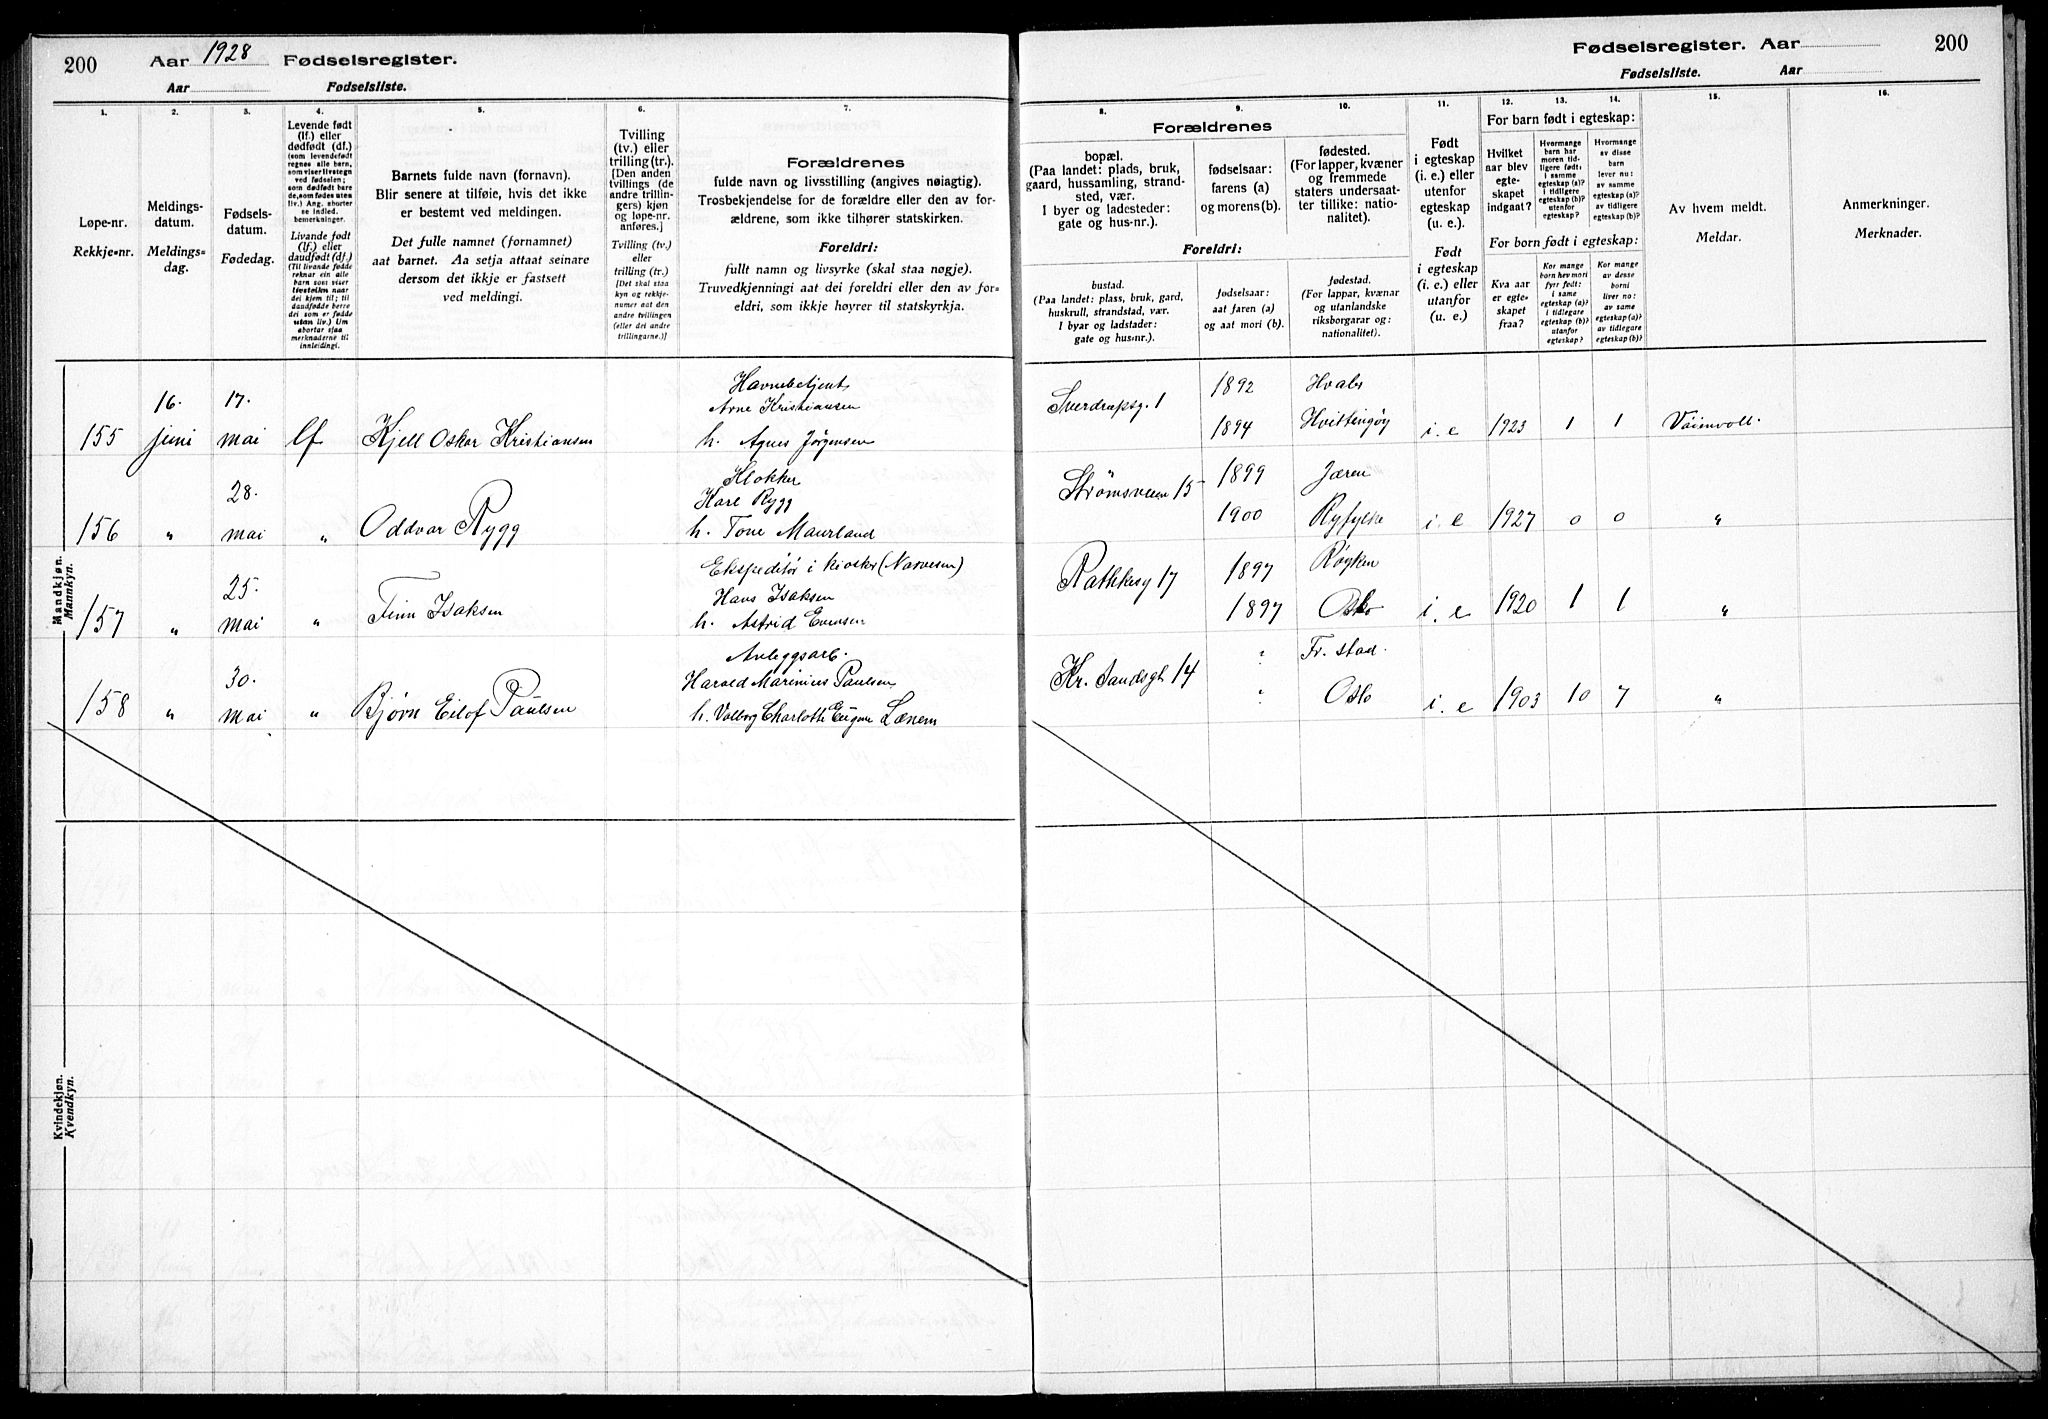 200 Aar 1928 Fødselsregister.
Aar Fødselsliste.
1. 2. 3. 4. 5. 6. 7.
Løpe-nr.
Rekkje-nr.
Meldings-
datum.
Meldings-
dag.
Fødsels-
datum.
Fødedag.
Levende født
(lf.) eller
dødfødt (df.)
(som levendefødt
regnes alle barn,
som viser livstegn
ved fødselen;
som dødfødt bare
de, som fødes uten
liv.) Ang. aborter
se indled.
bemerkninger.
Livande født
(lf.) eller
daudfødt (df.)
(Til livande fødde
reknar ein alle
barn som viser
livsteikn naar
dei kjem til; til
daudfødde berre
dei som er fødde
utan liv.) Um
abortar sjaa
merknaderne til
innleidingi.
Barnets fulde navn (fornavn).
Blir senere at tilføie, hvis det ikke
er bestemt ved meldingen.
Det fulle namnet (fornamnet)
aat barnet. Aa setja attaat seinare
dersom det ikkje er fastsett
ved meldingi.
Tvilling
(tv.) eller
trilling (tr.).
[Den anden
tvillings (de
andre trillin-
gers) kjøn
og løpe-nr.
anføres.]
Tvilling (tv.)
eller
trilling (tr.)
[Det skal staa
kyn og rekkje-
numer aat den
andre tvillingen
(eller dei andre
trillingarne.)]
Forældrenes
fulde navn og livsstilling (angives nøiagtig).
Trosbekjendelse for de forældre eller den av for-
ældrene, som ikke tilhører statskirken.
Foreldri:
fullt namn og livsyrke (skal staa nøgje).
Truvedkjenningi aat dei foreldri eller den av for-
eldri, som ikkje høyrer til statskyrkja.
Mandkjøn.
Mannkyn.
155 16. juni 17. mai lf Kjell Oskar Kristiansen
Havnebetjent
Arne Kristiansen
h. Agnes Jørgensen
156 " 28. mai " Oddvar Rygg
Klokker
Karl Rygg
h. Tone Maurland
157 " 25. mai " Finn Isaksen
Ekspeditør i kiosk (Narvesen)
Hans Isaksen
h. Astrid Evensen
158 " 30. mai " Bjørn Eilof Paulsen
Anleggsarb.
Harald Marinius Paulsen
h. Valborg Charlotte
Kvindekjøn.
Kvendkyn.
Fødselsregister. Aar 200
Fødselsliste. Aar
8. 9. 10. 11. 12. 13. 14. 15. 16.
Forældrenes
bopæl.
(Paa landet: plads, bruk,
gaard, hussamling, strand-
sted, vær.
I byer og ladesteder:
gate og hus-nr.).
fødselsaar:
farens (a)
og morens (b).
fødested.
(For lapper, kvæner
og fremmede
staters undersaat-
ter tillike: natio-
nalitet).
Foreldri:
bustad.
(Paa landet: plass, bruk, gard,
huskrull, strandstad, vær.
I byar og ladstader:
gate og hus-nr.).
fødselsaar:
aat faren (a)
og aat mori (b).
fødestad.
(For lappar, kvænar
og utanlandske
riksborgarar og:
nationalitet).
Født
i egteskap
(i. e.) eller
utenfor
egteskap
(u. e.).
Født
i egteskap
(i. e.) eller
utanfor
(u. e.)
For barn født i egteskap:
Hvilket
aar blev
egte-
skapet
indgaat?
Hvormange
barn har
moren tid-
ligere født:
i samme
egteskap (a)?
i tidligere
egteskap (b)?
utenfor
egteskap?
Hvormange
av disse
barn
lever nu:
av samme
egteskap (a)?
av tidligere
egteskap (b)?
For born født i egteskap:
Kva aar
er egte-
skapet
fraa?
Kor mange
barn hev mori
fyrr født:
i same
egteskap (a)?
i tidlegare
egteskap (b)?
utanfor
egteskap?
Kor mange
av desse
borni
liver no:
av same
egteskap (a)?
av tidlegare
egteskap (b)?
Av hvem meldt.
Meldar.
Anmerkninger.
Merknader.
Sverdrupsg. 1 1892 Hvaler
1894 Hvittingøy i. e 1923 1 1
Strømsveien 15 1899 Jæren
1900 Ryfylke i. e 1927 0 0 "
Rathkesg 17 1897 Røyken
1897 Oslo i. e 1920 1 1 "
Kr. Sandsgt 14 ? Fr. stad.
? Oslo i. e 1903 10 7 "